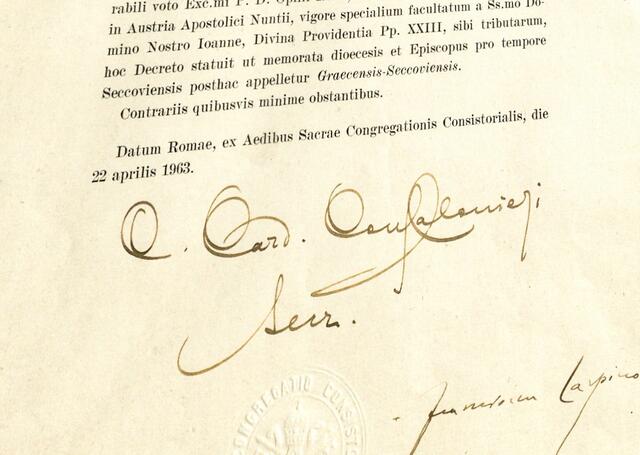 rabili voto Exc.mi P. D.
in Austria Apostolici Nuntii, vigore specialium facultatum a Ss.mo Do-
mino Nostro Ioanne, Divina Providentia Pp. XXIII, sibi tributarum,
hoc Decreto statuit ut memorata dioecesis et Episcopus pro tempore
Seccoviensis posthac appelletur Graecensis-Seccoviensis.
Contrariis quibusvis minime obstantibus.
Datum Romae, ex Aedibus Sacrae Congregationis Consistorialis, die
22 aprilis 1963.
C. Card. Confalonieri
Secr.
CONGREGATIO CONSISTO
Carpino